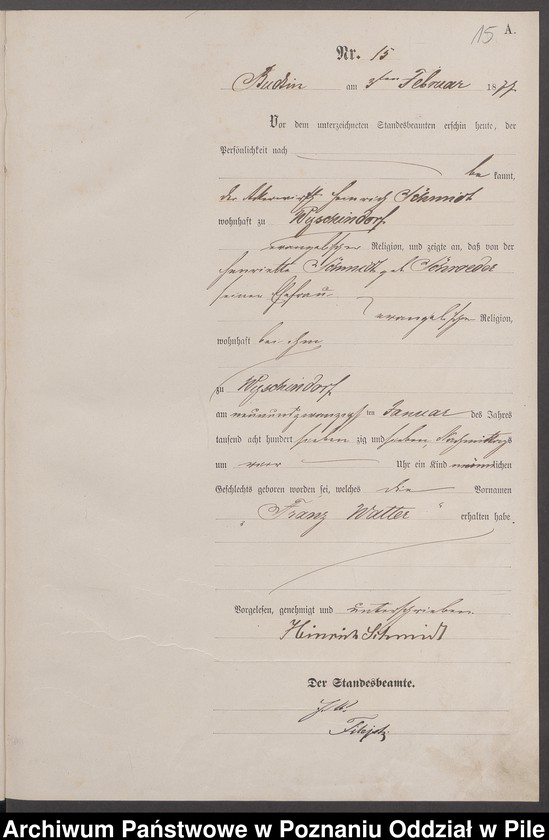 15 A.
Nr. 15
Budsin am 3ten Februar 1877
Vor dem unterzeichneten Standesbeamten erschin heute, der
Persönlichkeit nach
be kannt,
der Ackerwirth Heinrich Schmidt
wohnhaft zu Wyschindorf
evangelischer Religion, und zeigte an, daß von der
Henriette Schmidt geb Schroeder
seiner Ehefrau
evangelischer Religion,
wohnhaft bei ihm
zu Wyschindorf
am neunundzwanzigsten Januar des Jahres
tausend acht hundert sieben zig und sieben, Nachmittags
um Uhr ein Kind männlichen
Geschlechts geboren worden sei, welches die Vornamen
„Franz Walter“ erhalten habe.
Vorgelesen, genehmigt und unterschrieben.
Heinrich Schmidt
Der Standesbeamte.
Archiwum Państwowe w Poznaniu Oddział w Pile